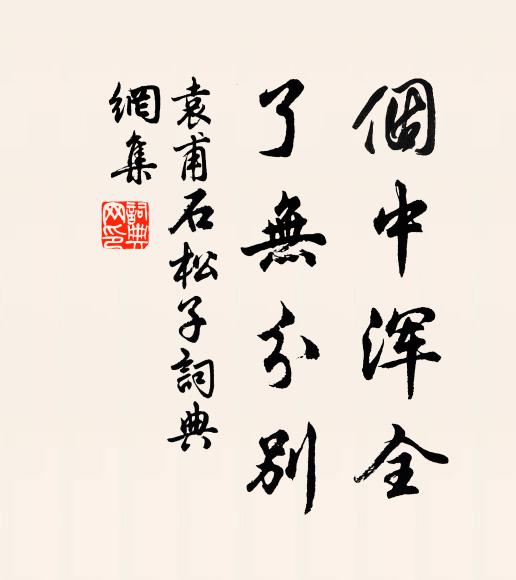 個中浑全
了無分別
袁甫石松子詞典
網集
詞典网印